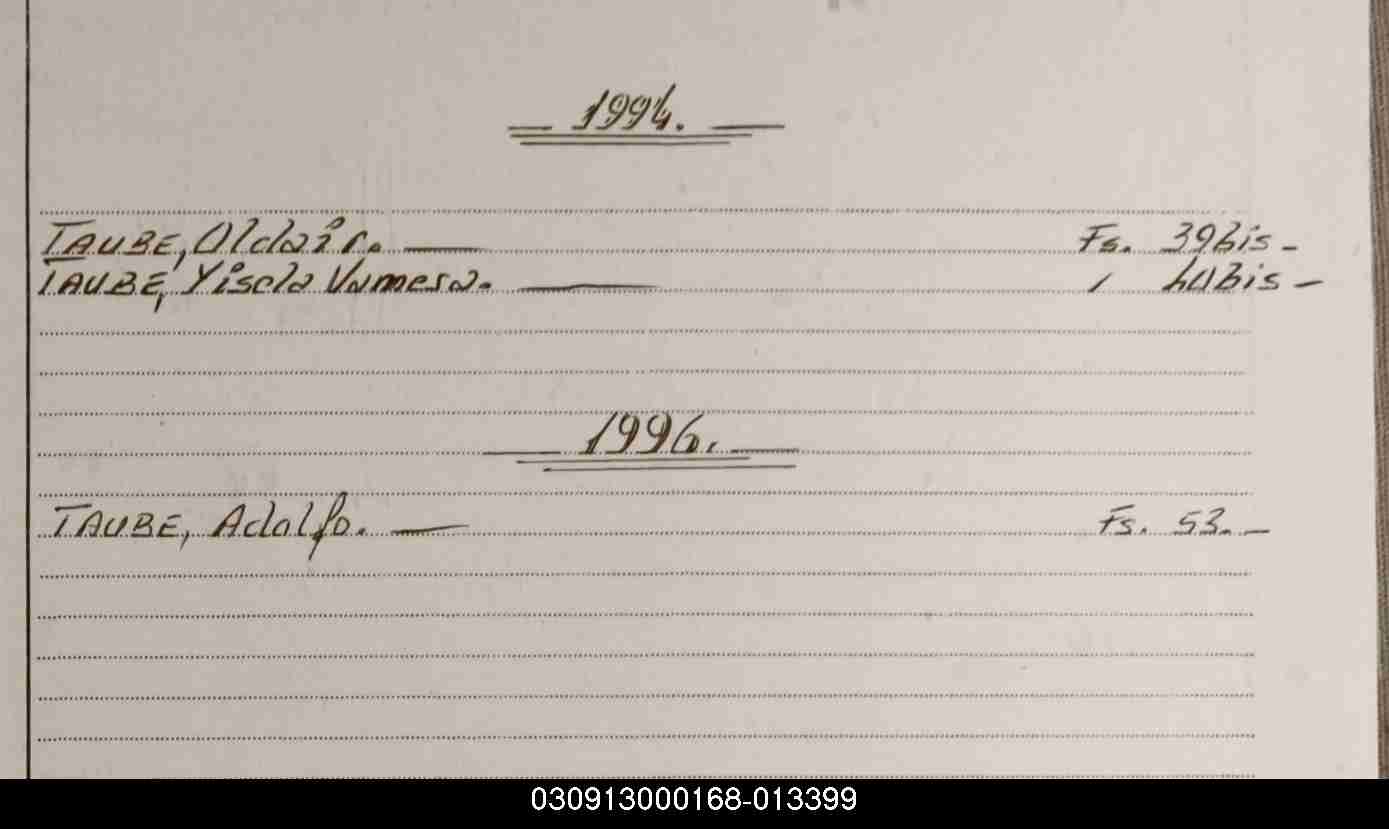 1994.
TAUBE, Oldair. Fs. 39Bis -
TAUBE, Yisela Vamesa. / 40Bis -
1996.
TAUBE, Adolfo. Fs. 53. -
030913000168-013399